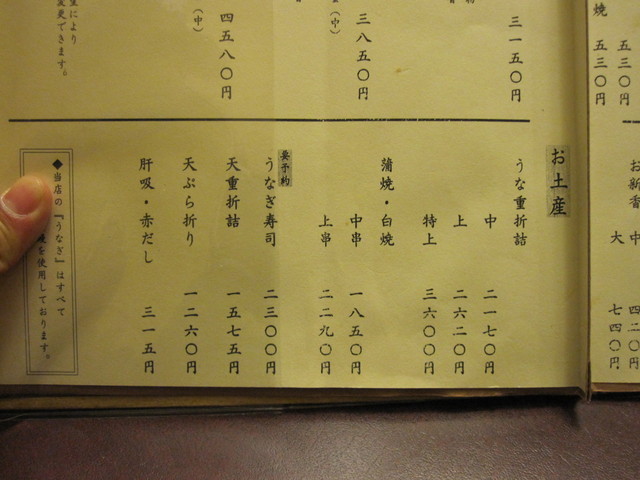 焼 五三〇円
五三〇円
お新香 中 四二〇円
大 七四〇円
三一五〇円
(中) 三八五〇円
(中) 四五八〇円
により
変更できます。
お土産
うな重折詰
中 二一七〇円
上 二六二〇円
特上 三六〇〇円
蒲焼・白焼
中串 一八五〇円
上串 二二九〇円
要予約
うなぎ寿司 二三〇〇円
天重折詰 一五七五円
天ぷら折り 一二六〇円
肝吸・赤だし 三一五円
◆当店の『うなぎ』はすべて
焼を使用しております。